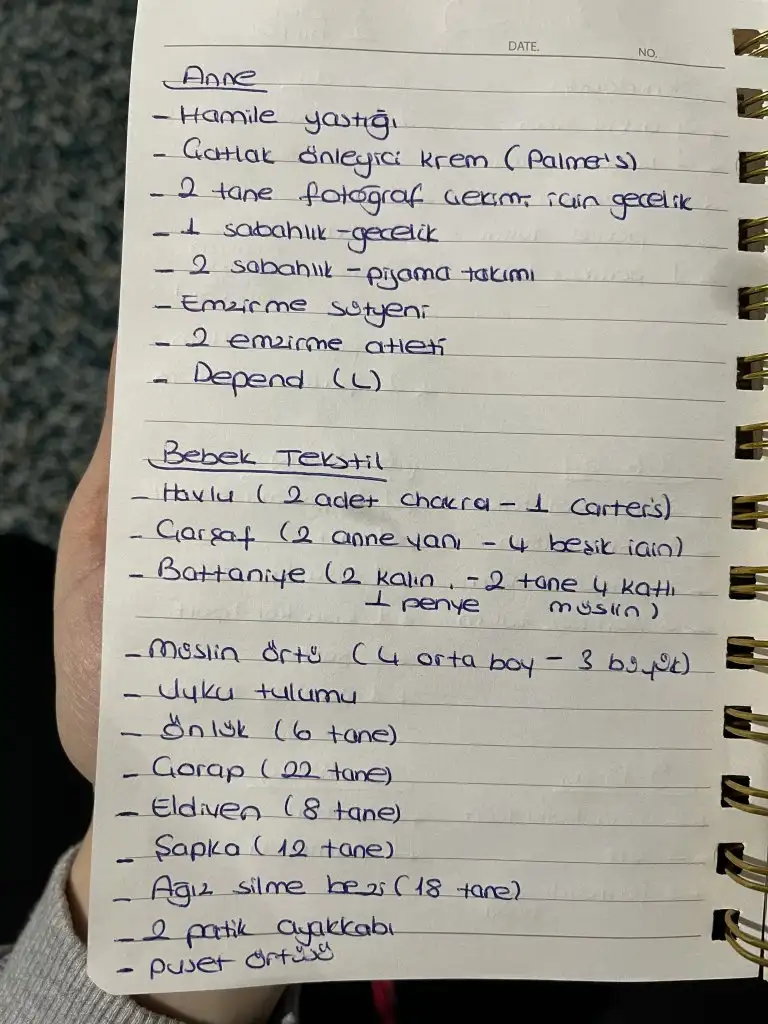 DATE. NO.
Anne
- Hamile yastığı
- Çatlak önleyici krem (Palmer's)
- 2 tane fotoğraf çekimi için gecelik
- 1 sabahlık-gecelik
- 2 sabahlık - pijama takımı
- Emzirme sütyeni
- 2 emzirme atleti
- Depend (L)
Bebek Tekstil
- Havlu (2 adet chakra - 1 Carter's)
- Çarşaf (2 anne yanı - 4 beşik için)
- Battaniye (2 kalın, - 2 tane 4 katlı
1 penye müslin)
- Müslin örtü (4 orta boy - 3 büyük)
- Uyku tulumu
- Önlük (6 tane)
- Çorap (22 tane)
- Eldiven (8 tane)
- Şapka (12 tane)
- Ağız silme bezi (18 tane)
- 2 patik ayakkabı
- puset örtüsü